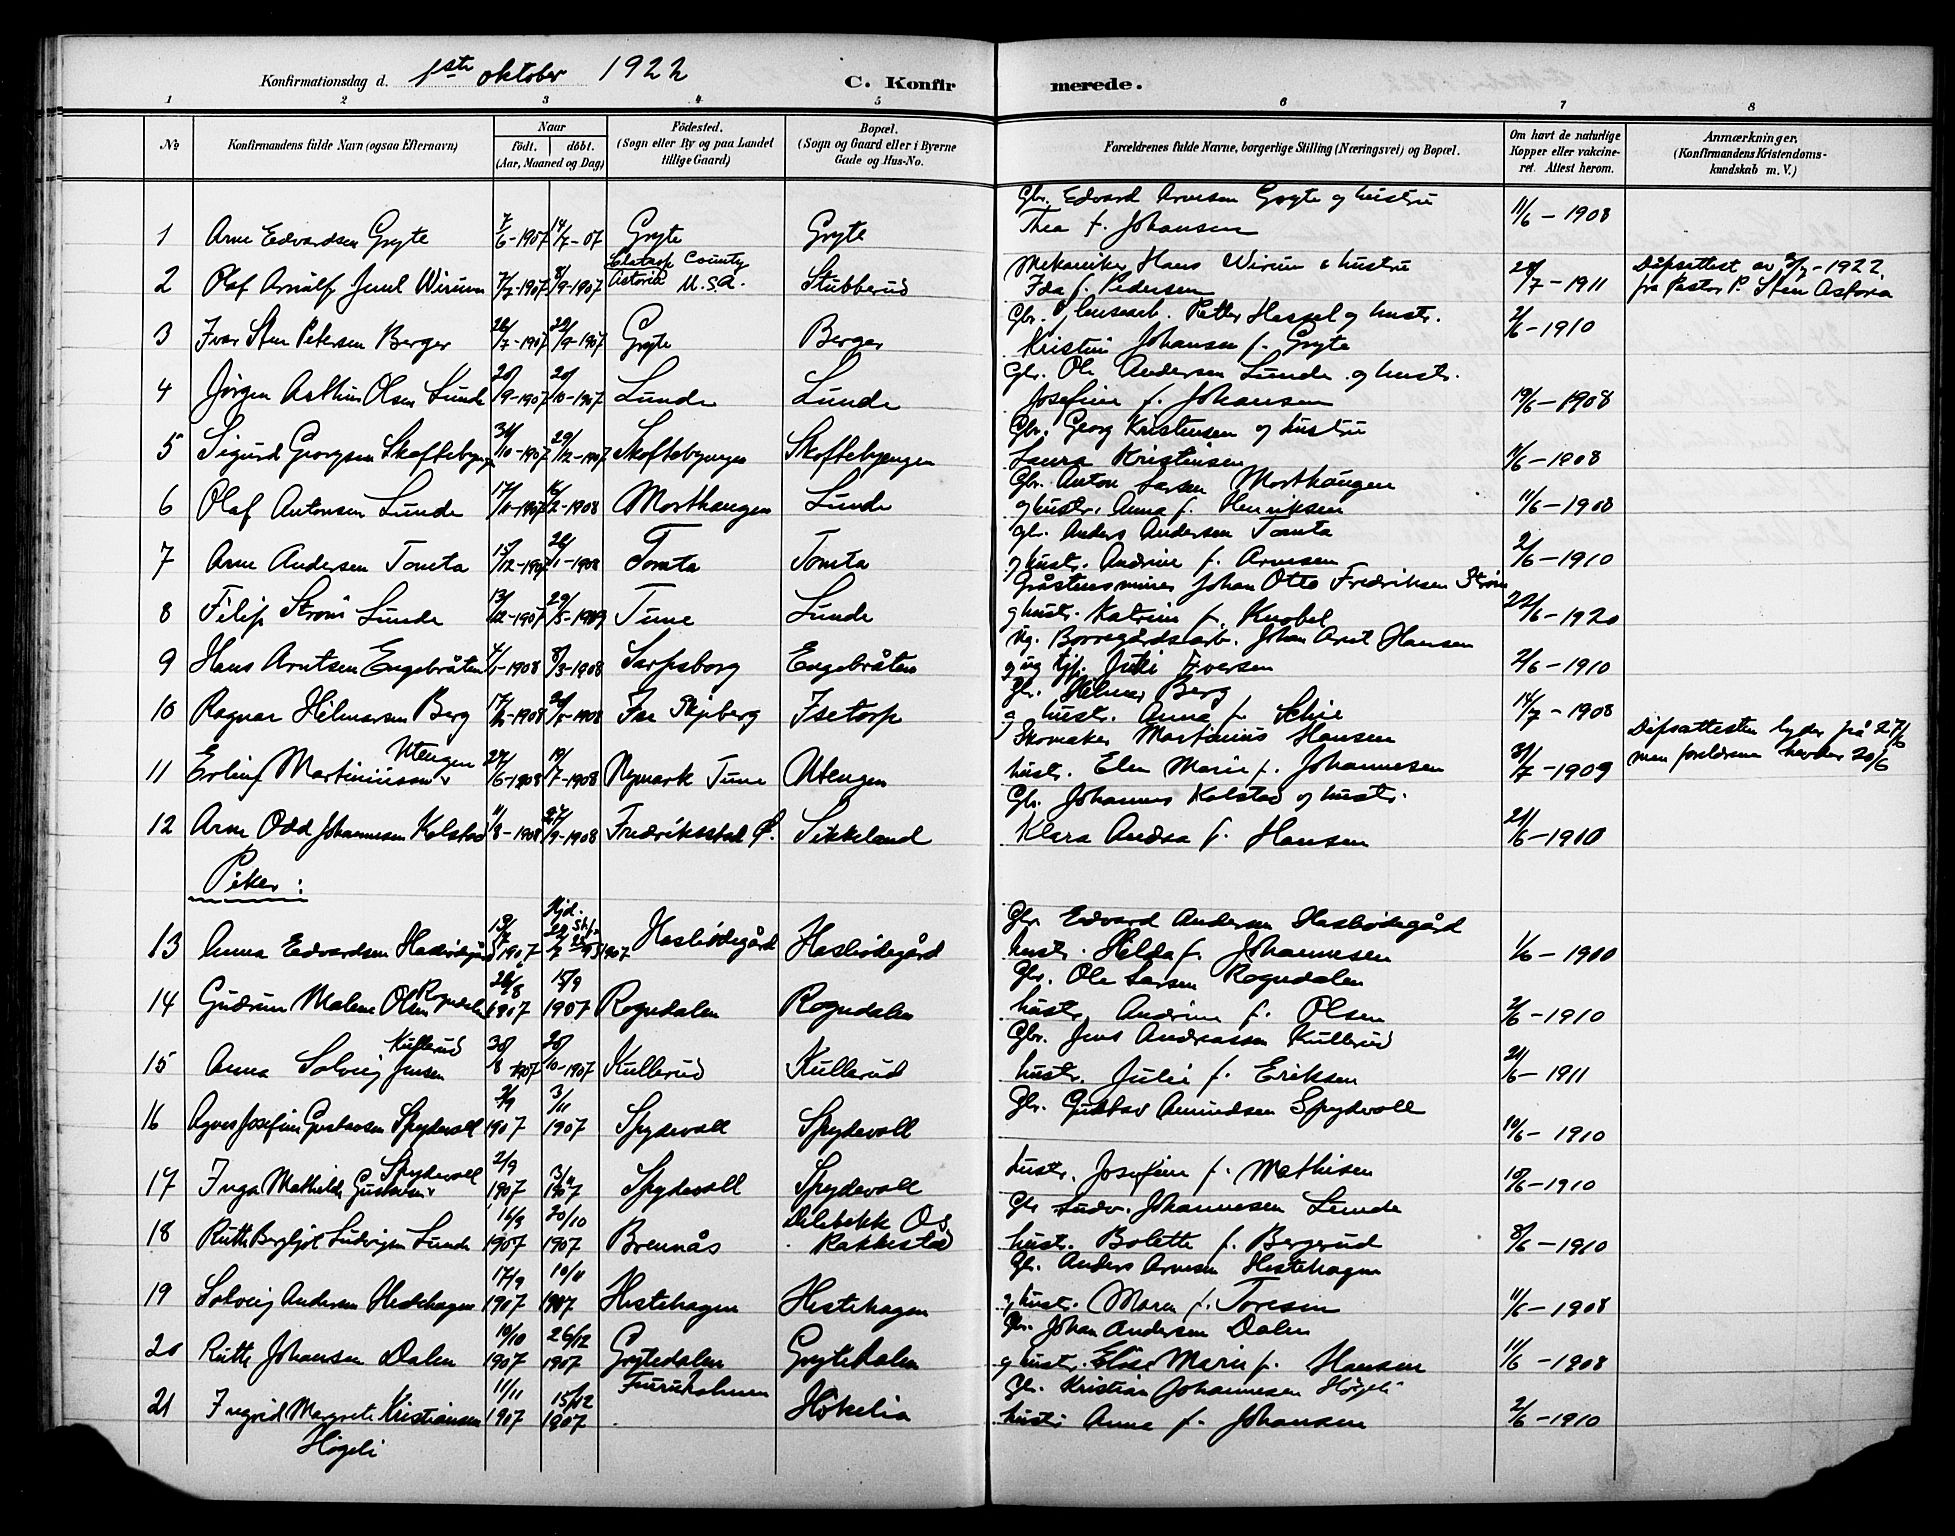 Konfirmationsdag d. 1ste oktober 1922 C. Konfirmerede.
1 2 3 4 5 6 7 8
No Konfirmandens fulde Navn (ogsaa Efternavn) Naar födt. döbt. (Aar, Maaned og Dag) Födested. (Sogn eller By og paa Landet tillige Gaard) Bopæl. (Sogn og Gaard eller i Byerne Gade og Hus-No. Forældrenes fulde Navne, borgerlige Stilling (Næringsvei) og Bopæl. Om havt de naturlige Kopper eller vakcineret. Attest herom. Anmærkninger, (Konfirmandens Kristendomskundskab m. V.)
Gbr. Edvard Arnesen Gryte og hustru
1 Arne Edvardsen Gryte 7/6-1907 14/7-07 Gryte Gryte Thea f. Johansen 11/6-1908
Clatsop County Mekaniker Hans Wirum & hustru
2 Olaf Arnulf Juul Wirum 7/7-1907 8/9-1907 Astoria U.S.A. Stubberud Ida f. Pedersen 28/7-1911 Dåpsattest av -1922 fra Pastor P. Sten Astoria
Gbr. Petter Hespel og hustr.
3 Ivar Sten Petersen Berger 28/7-1907 22/9-1907 Gryte Berger Kristin Johansen f. Gryte 2/6-1910
Gbr. Ole Andersen Lunde og hustr.
4 Jörgen Arthur Olsen Lunde 20/9-1907 20/10-1907 Lunde Lunde Josefine f. Johansen 19/6-1908
Gbr. Georg Kristensen og hustru
5 Sigurd Georgsen Skoftebyengen 31/10-1907 29/12-1907 Skoftebyengen Skoftebyengen Laura Kristensen 11/6-1908
Gbr. Anton Larsen Morthaugen
6 Olaf Antonsen Lunde 17/11-1907 16/2-1908 Morthaugen Lunde og hustr. Anna f. Henriksen 11/6-1908
gbr. Anders Andersen Tomta
7 Arne Andersen Tomta 15/12-1907 26/1-1908 Tomta Tomta og hustr. Andrine f. Arnesen 2/6-1910
Gråstensminer Johan Otto Fredriksen Ström
8 Filip Ström Lunde 13/12-1907 29/5-1909 Tune Lunde og hustr. Katrine f. Knobel 22/6-1920
Ug. Borregårdsarb. Johan Arnt Hansen
9 Hans Arntsen Engebråten 4/1-1908 8/3-1908 Sarpsborg Engebråten og ug tjp. Juli Iversen 2/6-1910
Gbr. Hilmar Berg
10 Ragnar Hilmarsen Berg -1908 -1908 Ise Skjeberg Isetorp og hustr. Anna f. Schie 14/7-1908
Utengen Skomaker Martinius Hansen Dåpsattesten lyder på 27/6
11 Erling Martiniussen 27/6-1908 19/7-1908 Nymark Tune Utengen hustr. Elen Marie f. Johannesen 31/7-1909 men foreldrene hevder 20/6
Gbr. Johannes Kolstad og hustr.
12 Arne Odd Johannesen Kolstad 11/8-1908 27/9-1908 Fredriksstad Ø. Sikkeland Klara Andrea f. Hansen 21/6-1910
Piker:
Hjd. Gbr Edvard Andersen Haslødegård
13 Anna Edvardsen 1907 Haslødegård Haslødegård hustr. Hilda f. Johannesen 1/6-1910
Gbr. Ole Larsen Rognedalen
14 Gudrun Malene Olsen Rognedalen 28/8 1907 15/9 1907 Rognedalen Rognedalen hustr. Andrine f. Olsen 2/6-1910
Kullerud Gbr. Jens Andreassen Kullerud
15 Anna Solveig Jensen 30/8 1907 20/10-1907 Kullerud Kullerud hustr. Julie f. Eriksen 21/6-1911
Gbr. Gustav Amundsen Spydevoll
16 Agnes Josefine Gustavsen Spydevoll 2/9 1907 3/11 1907 Spydevoll Spydevoll 10/6-1910
Spydevoll
17 Inga Mathilde Gustavsen 2/9 1907 3/11 1907 Spydevoll Spydevoll hustr. Josefine f. Mathisen 10/6-1910
Delebekk Os Gbr Ludv. Johannesen Lunde
18 Ruth Bergljot Ludvigsen Lunde 16/9 1907 20/10 1907 Brennås Rakkestad hustr. Bolette f. Bergerud 8/6-1910
Gbr. Anders Arnesen Hestehagen
19 Solveig Andersen Hestehagen 17/9 1907 10/11 1907 Hestehagen Hestehagen og hustr. Maren f. Toresen 11/6-1908
Gbr. Johan Andersen Dalen
20 Ruth Johansen Dalen 10/10 1907 26/12 1907 Grytedalen Grytedalen og hustr. Elise Marie f. Hansen 11/6-1908
Furuholmen Gbr. Kristian Johannesen Høgeli
21 Ingrid Margrete Kristiansen 11/11 1907 15/12 1907 Høkelia hustr Anna f. Johansen 2/6-1910
Høgeli